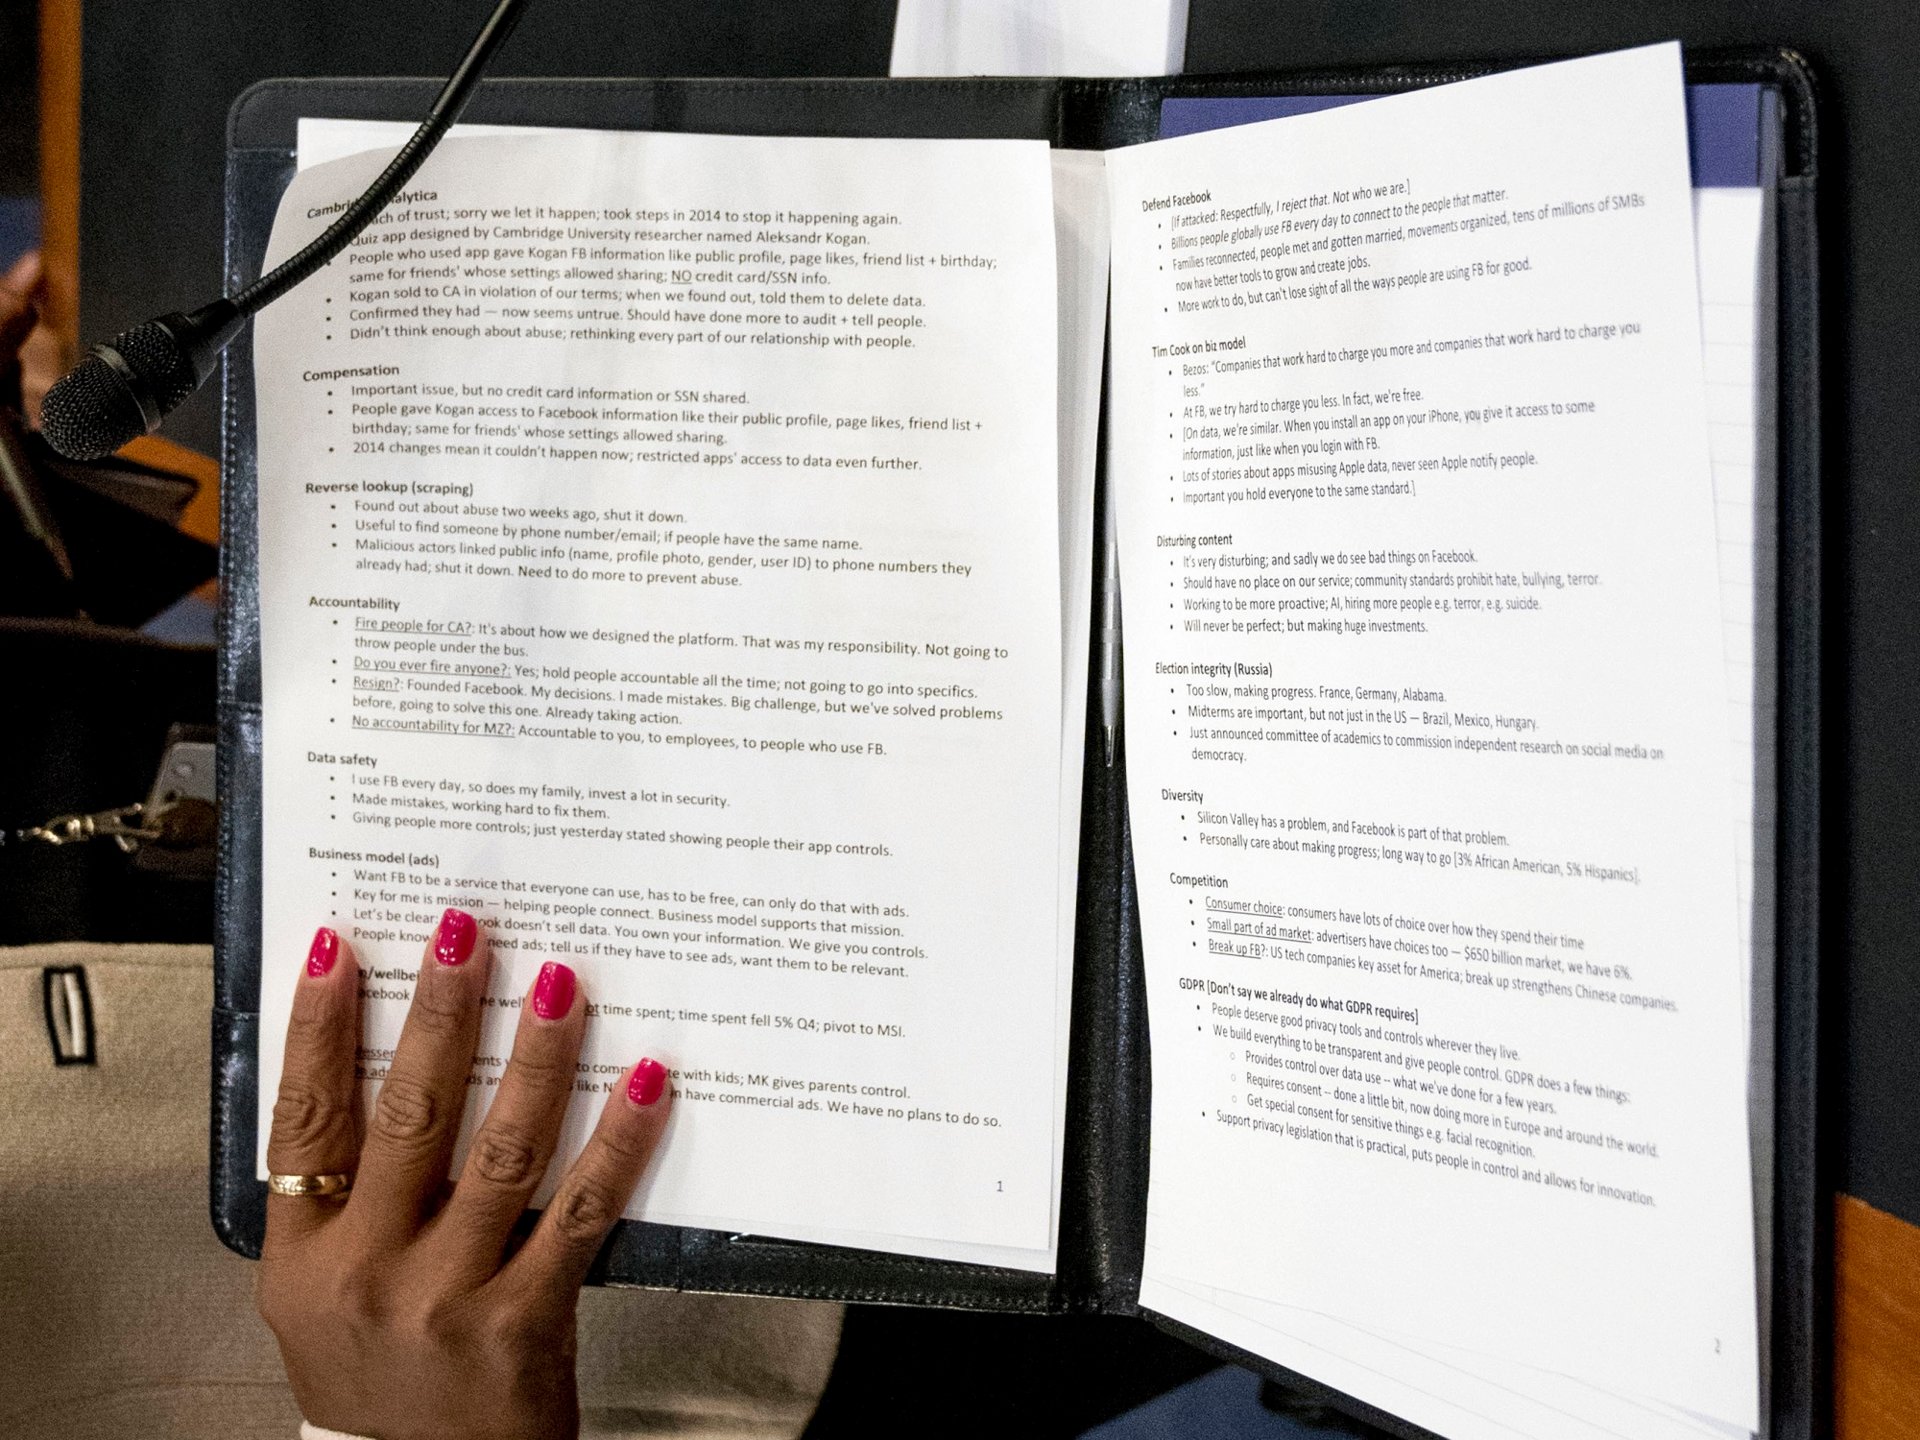 Cambri alytica
ch of trust; sorry we let it happen; took steps in 2014 to stop it happening again.
Quiz app designed by Cambridge University researcher named Aleksandr Kogan.
• People who used app gave Kogan FB information like public profile, page likes, friend list + birthday;
same for friends' whose settings allowed sharing; NO credit card/SSN info.
• Kogan sold to CA in violation of our terms; when we found out, told them to delete data.
• Confirmed they had — now seems untrue. Should have done more to audit + tell people.
• Didn't think enough about abuse; rethinking every part of our relationship with people.
Compensation
• Important issue, but no credit card information or SSN shared.
• People gave Kogan access to Facebook information like their public profile, page likes, friend list +
birthday; same for friends' whose settings allowed sharing.
• 2014 changes mean it couldn't happen now; restricted apps' access to data even further.
Reverse lookup (scraping)
• Found out about abuse two weeks ago, shut it down.
• Useful to find someone by phone number/email; if people have the same name.
• Malicious actors linked public info (name, profile photo, gender, user ID) to phone numbers they
already had; shut it down. Need to do more to prevent abuse.
Accountability
• Fire people for CA?: It's about how we designed the platform. That was my responsibility. Not going to
throw people under the bus.
• Do you ever fire anyone?: Yes; hold people accountable all the time; not going to go into specifics.
• Resign?: Founded Facebook. My decisions. I made mistakes. Big challenge, but we've solved problems
before, going to solve this one. Already taking action.
• No accountability for MZ?: Accountable to you, to employees, to people who use FB.
Data safety
• I use FB every day, so does my family, invest a lot in security.
• Made mistakes, working hard to fix them.
• Giving people more controls; just yesterday stated showing people their app controls.
Business model (ads)
• Want FB to be a service that everyone can use, has to be free, can only do that with ads.
• Key for me is mission — helping people connect. Business model supports that mission.
• Let's be clear: ook doesn't sell data. You own your information. We give you controls.
People know need ads; tell us if they have to see ads, want them to be relevant.
n/wellbei
acebook ne well ot time spent; time spent fell 5% Q4; pivot to MSI.
esser ents to comm te with kids; MK gives parents control.
ads ds an like N n have commercial ads. We have no plans to do so.
1
Defend Facebook
• [If attacked: Respectfully, I reject that. Not who we are.]
• Billions people globally use FB every day to connect to the people that matter.
• Families reconnected, people met and gotten married, movements organized, tens of millions of SMBs
now have better tools to grow and create jobs.
• More work to do, but can't lose sight of all the ways people are using FB for good.
Tim Cook on biz model
• Bezos: "Companies that work hard to charge you more and companies that work hard to charge you
less."
• At FB, we try hard to charge you less. In fact, we're free.
• [On data, we're similar. When you install an app on your iPhone, you give it access to some
information, just like when you login with FB.
• Lots of stories about apps misusing Apple data, never seen Apple notify people.
• Important you hold everyone to the same standard.]
Disturbing content
• It's very disturbing; and sadly we do see bad things on Facebook.
• Should have no place on our service; community standards prohibit hate, bullying, terror.
• Working to be more proactive; AI, hiring more people e.g. terror, e.g. suicide.
• Will never be perfect; but making huge investments.
Election integrity (Russia)
• Too slow, making progress. France, Germany, Alabama.
• Midterms are important, but not just in the US — Brazil, Mexico, Hungary.
• Just announced committee of academics to commission independent research on social media on
democracy.
Diversity
• Silicon Valley has a problem, and Facebook is part of that problem.
• Personally care about making progress; long way to go [3% African American, 5% Hispanics].
Competition
• Consumer choice: consumers have lots of choice over how they spend their time
• Small part of ad market: advertisers have choices too — $650 billion market, we have 6%.
• Break up FB?: US tech companies key asset for America; break up strengthens Chinese companies.
GDPR [Don't say we already do what GDPR requires]
• People deserve good privacy tools and controls wherever they live.
• We build everything to be transparent and give people control. GDPR does a few things:
○ Provides control over data use -- what we've done for a few years.
○ Requires consent -- done a little bit, now doing more in Europe and around the world.
○ Get special consent for sensitive things e.g. facial recognition.
• Support privacy legislation that is practical, puts people in control and allows for innovation.
2